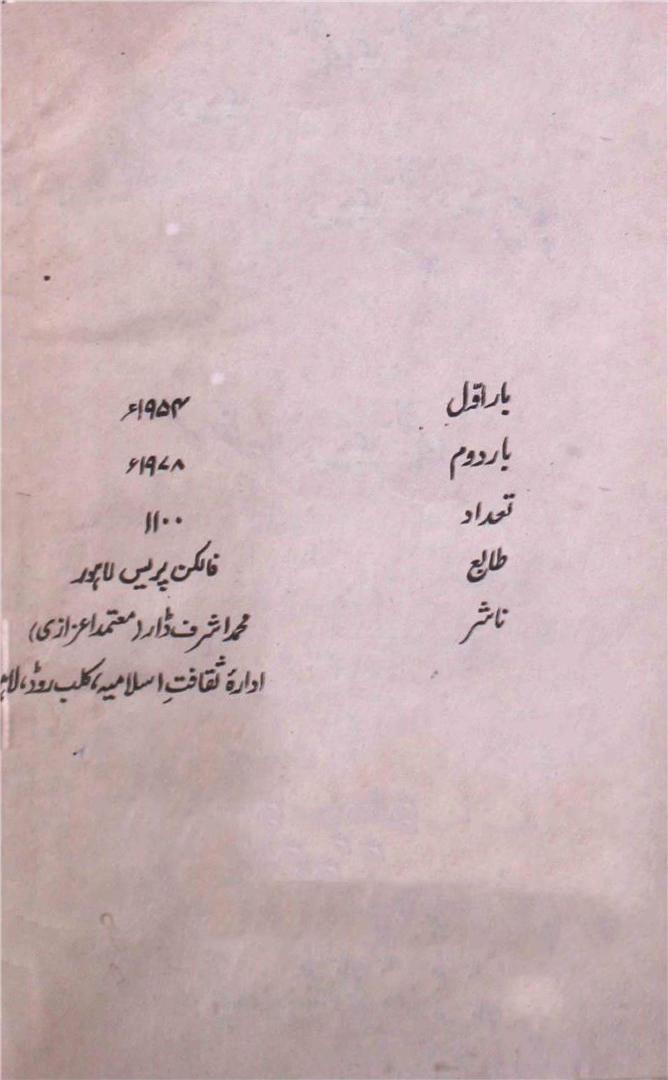 بار اوّل ۱۹۵۴ء
بار دوم ۱۹۷۸ء
تعداد ۱۱۰۰
طابع فالکن پریس لاہور
ناشر محمد اشرف ڈار (معتمد اعزازی)
ادارۂ ثقافتِ اسلامیہ، کلب روڈ،